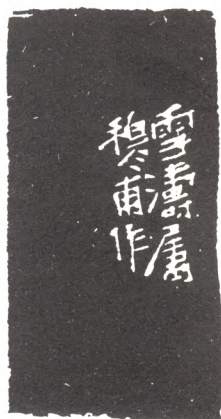 雪濤属
穆甫作